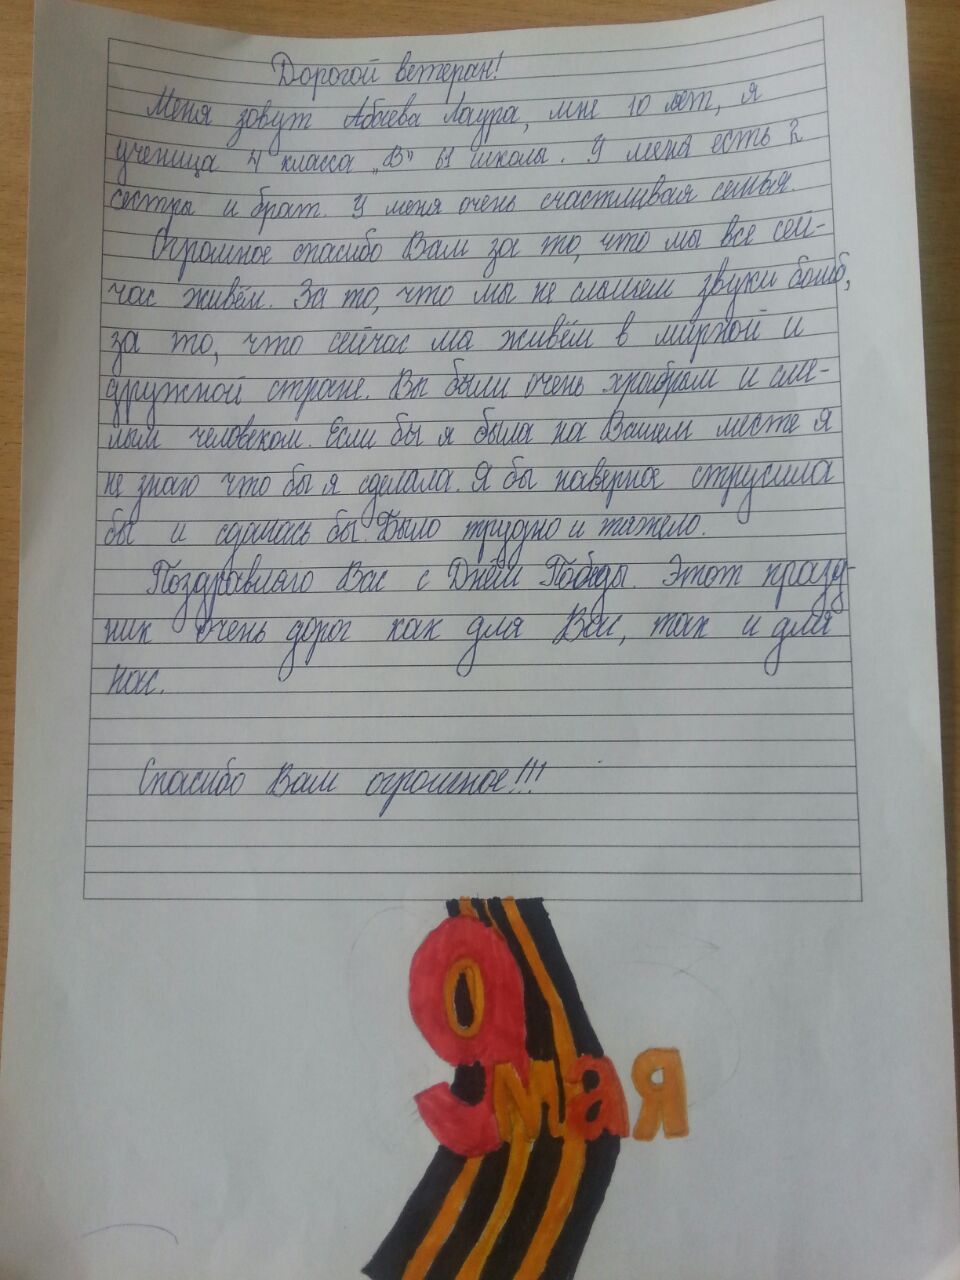 Дорогой ветеран!
Меня зовут Абаева Лаура, мне 10 лет, я
ученица 4 класса „В" 61 школы. У меня есть 2
сестры и брат. У меня очень счастливая семья.
Огромное спасибо Вам за то, что мы все сей-
час живём. За то, что мы не слышем звуки бомб,
за то, что сейчас ма живём в мирной и
дружной стране. Вы были очень храбрым и сме-
лым человеком. Если бы я была на Вашем месте я
не знаю что бы я сделала. Я бы наверное струсила
бы и сдалась бы. Было трудно и тяжело.
Поздравляю Вас с Днём Победы. Этот празд-
ник очень дорог как для Вас, так и для
нас.
Спасибо Вам огромное!!!
9 мая